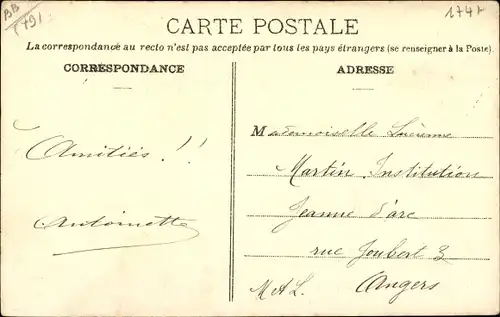 BB
(79)
1747
CARTE POSTALE
La correspondance au recto n'est pas acceptée par tous les pays étrangers (se renseigner à la Poste).
CORRESPONDANCE
ADRESSE
Amitiés!!
Antoinette
Mademoiselle Lucienne
Martin Institution
Jeanne d'arc
rue Joubert 3
Angers
M & L.